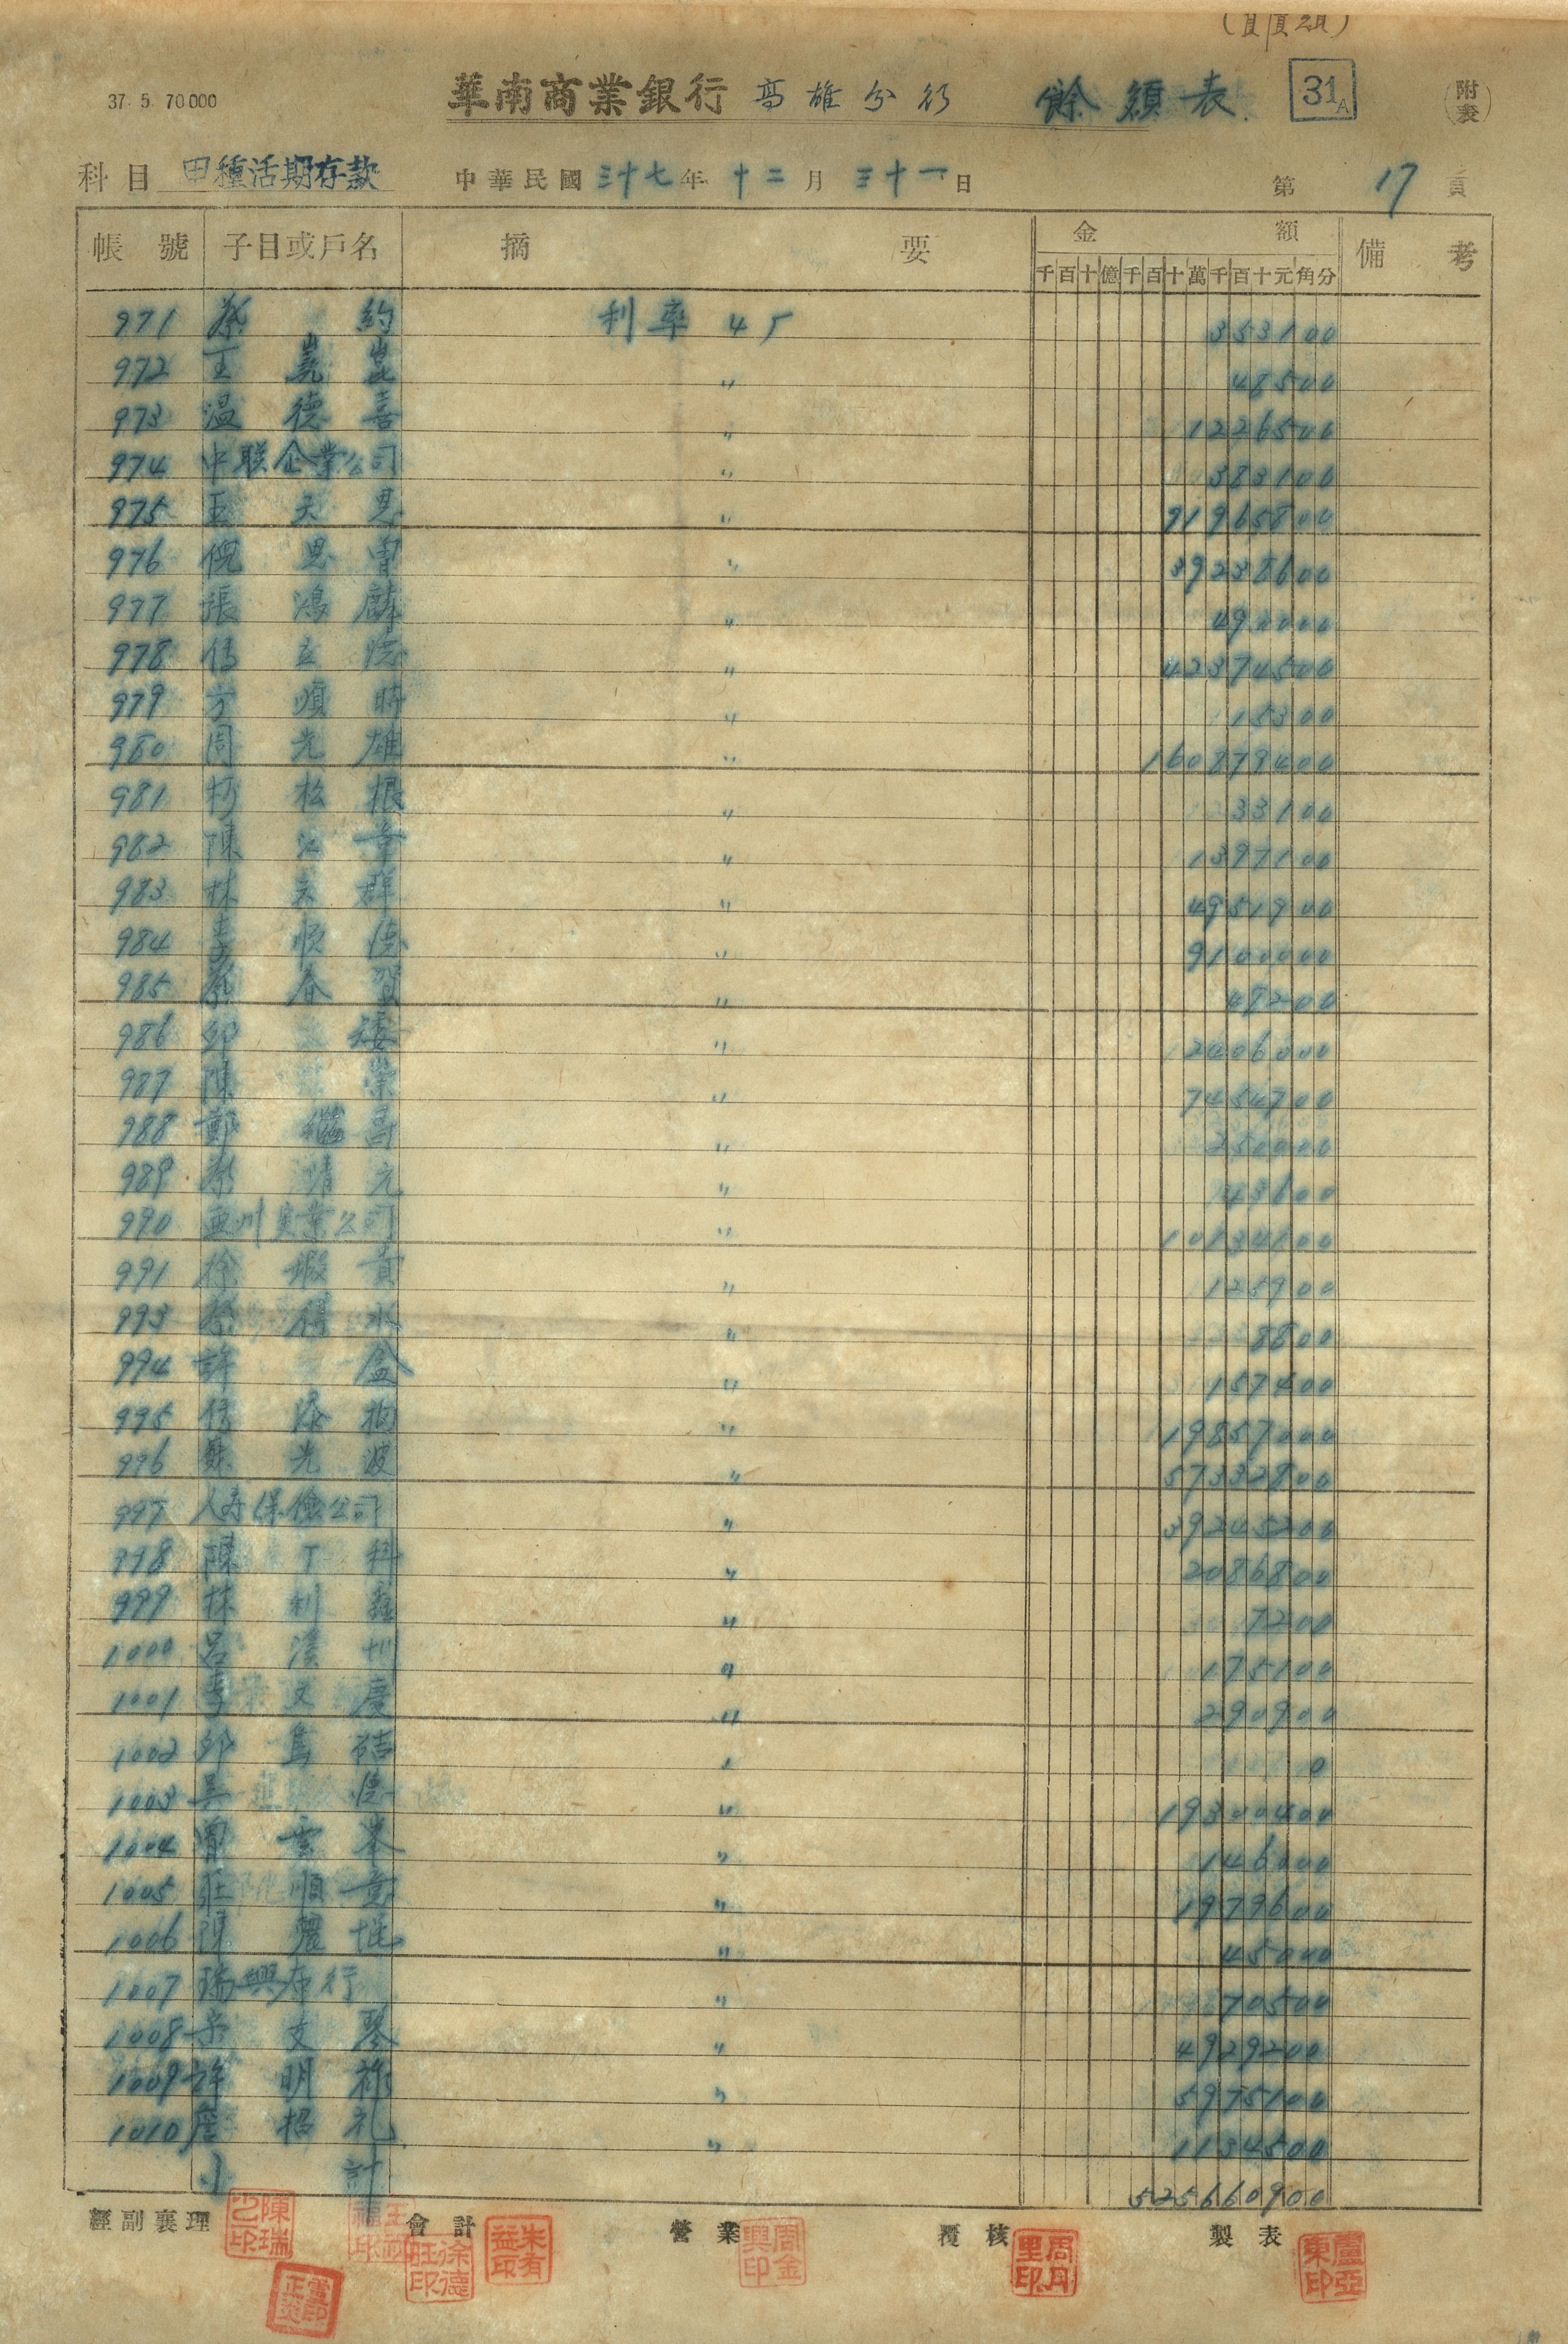 37. 5. 70000
華南商業銀行 高雄分行 餘額表 31A (附表)
科目 甲種活期存款 中華民國三十七年十二月三十一日 第17頁
帳號 子目或戶名 摘要 金額 備考
千百十億千百十萬千百十元角分
971 蔡 約 利率 45 353100
972 王 崑 〃 48500
973 温德喜 〃 1226500
974 中联企業公司 〃 383100
975 王天恩 〃 91965800
976 倪恩曾 〃 39238600
977 張鴻麟 〃 490000
978 立德 〃 42374500
979 方順時 〃 15300
980 周光雄 〃 160879400
981 柯松根 〃 33100
982 陳 章 〃 1397100
983 林 群 〃 4951900
984 李順德 〃 9100000
985 蔡春賀 〃 48200
986 邱 矮 〃 2406000
987 陳 榮 〃 7454700
988 鄭繼昌 〃 250000
989 蔡 元 〃 43600
990 亜州実業公司 〃 10134100
991 徐 貴 〃 125900
993 蔡得水 〃 8800
994 許 盒 〃 157400
995 添 〃 19857000
996 蘇光波 〃 57332800
997 人寿保儉公司 〃 39245200
998 陳丁科 〃 2086800
999 林利 〃 7200
1000 呂溪圳 〃 175100
1001 李文慶 〃 290900
1002 邱 〃 0
1003 吳 德 〃 19300400
1004 曾雲峯 〃 146000
1005 莊順 〃 1979600
1006 陳 〃 45000
1007 瑞興 行 〃 70500
1008 文琴 〃 4929200
1009 許明祿 〃 5975100
1010 詹招礼 〃 1134500
小計 525660900
經副襄理 會計 營業 覆核 製表
陳瑞 印 徐德旺印 朱有益印 周金興印 周丹里印 盧亞東印